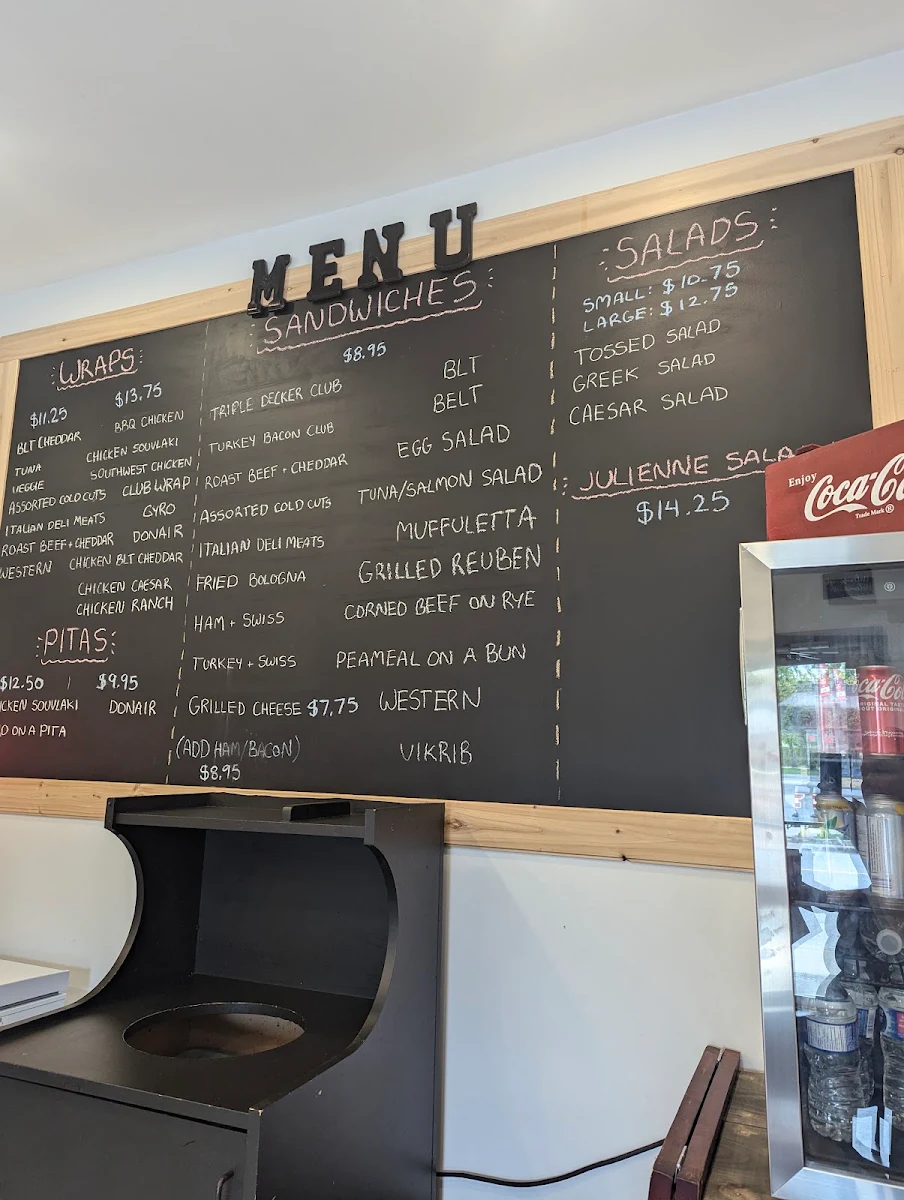 MENU
WRAPS
$11.25
BLT CHEDDAR
TUNA
VEGGIE
ASSORTED COLD CUTS
ITALIAN DELI MEATS
ROAST BEEF + CHEDDAR
WESTERN
$13.75
BBQ CHICKEN
CHICKEN SOUVLAKI
SOUTHWEST CHICKEN
CLUB WRAP
GYRO
DONAIR
CHICKEN BLT CHEDDAR
CHICKEN CAESAR
CHICKEN RANCH
PITAS
$12.50 | $9.95
ICKEN SOUVLAKI DONAIR
O ON A PITA
SANDWICHES
$8.95
TRIPLE DECKER CLUB
TURKEY BACON CLUB
ROAST BEEF + CHEDDAR
ASSORTED COLD CUTS
ITALIAN DELI MEATS
FRIED BOLOGNA
HAM + SWISS
TURKEY + SWISS
GRILLED CHEESE $7.75
(ADD HAM/BACON)
$8.95
BLT
BELT
EGG SALAD
TUNA/SALMON SALAD
MUFFULETTA
GRILLED REUBEN
CORNED BEEF ON RYE
PEAMEAL ON A BUN
WESTERN
VIKRIB
SALADS
SMALL: $10.75
LARGE: $12.75
TOSSED SALAD
GREEK SALAD
CAESAR SALAD
JULIENNE SALA
$14.25
Enjoy
Coca-Co
Trade Mark ®